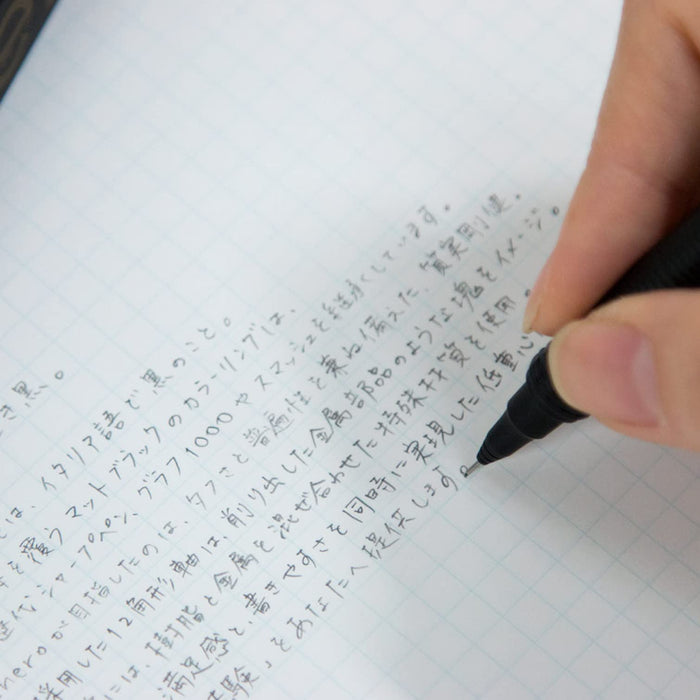 き黒。
は、イタリア語で黒のこと。
を覆うマットブラックのカラーリングは、
代シャープペン、グラフ1000やスマッシュを継承しています。
neroが目指したのは、タフさと普遍性を兼ね備えた、質実剛健。
採用した12角形軸は、削り出した金属部品のような塊をイメージ。
には、樹脂と金属を混ぜ合わせた特殊材質を使用。
満足感と、書きやすさを同時に実現した低重心
験」をあなたへ提供します。